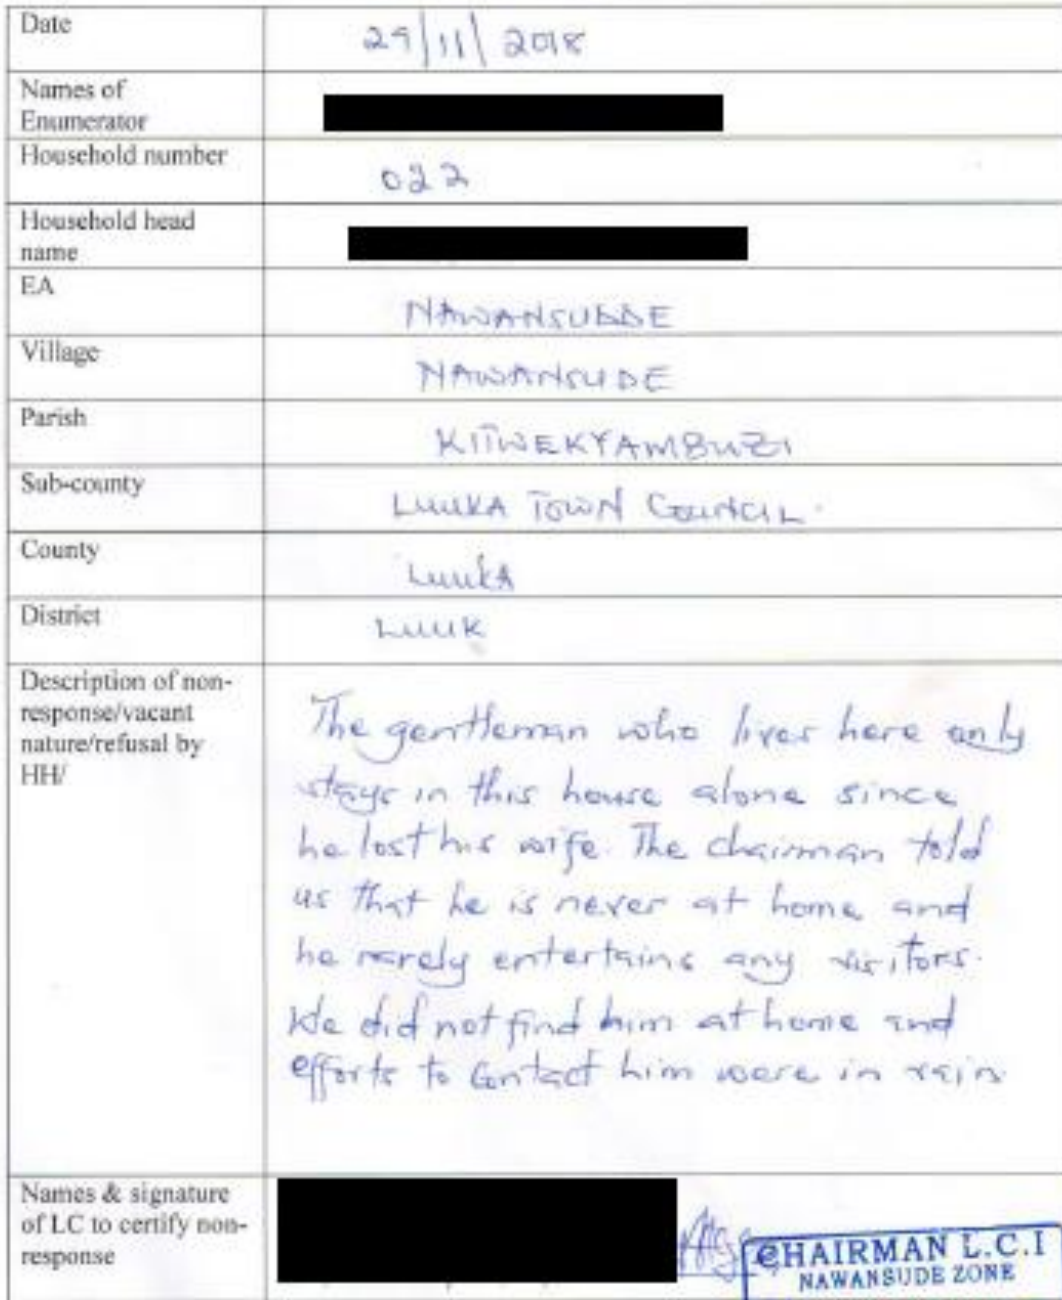 Date
29/11/2018
Names of
Enumerator
Household number
022
Household head
name
EA
NAWANSUDDE
Village
NAWANSUDE
Parish
KITWEKYAMBUZI
Sub-county
LUUKA TOWN COUNCIL.
County
LUUKA
District
LUUK
Description of non-
response/vacant
nature/refusal by
HH/
The gentleman who lives here only
stays in this house alone since
he lost his wife. The chairman told
us that he is never at home and
he rarely entertains any visitors.
We did not find him at home and
efforts to contact him were in vain.
Names & signature
of LC to certify non-
response
CHAIRMAN L.C.I
NAWANSUDE ZONE